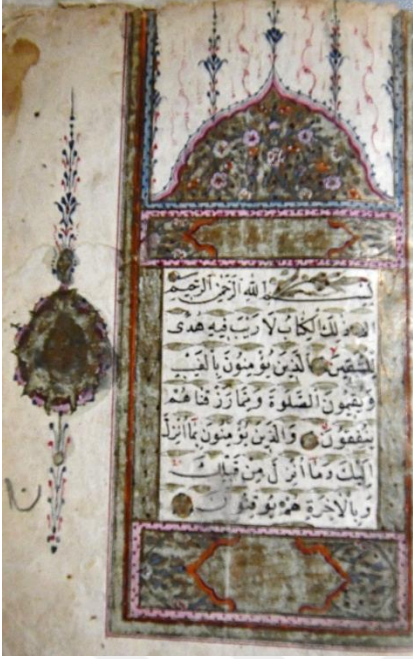 بِسْمِ اللهِ الرَّحْمٰنِ الرَّحِيمِ
الم ذٰلِكَ الْكِتَابُ لَا رَيْبَ فِيهِ هُدًى
لِلْمُتَّقِينَ الَّذِينَ يُؤْمِنُونَ بِالْغَيْبِ
وَيُقِيمُونَ الصَّلٰوةَ وَمِمَّا رَزَقْنَاهُمْ
يُنْفِقُونَ وَالَّذِينَ يُؤْمِنُونَ بِمَا أُنْزِلَ
إِلَيْكَ وَمَا أُنْزِلَ مِنْ قَبْلِكَ
وَبِالْاٰخِرَةِ هُمْ يُوقِنُونَ